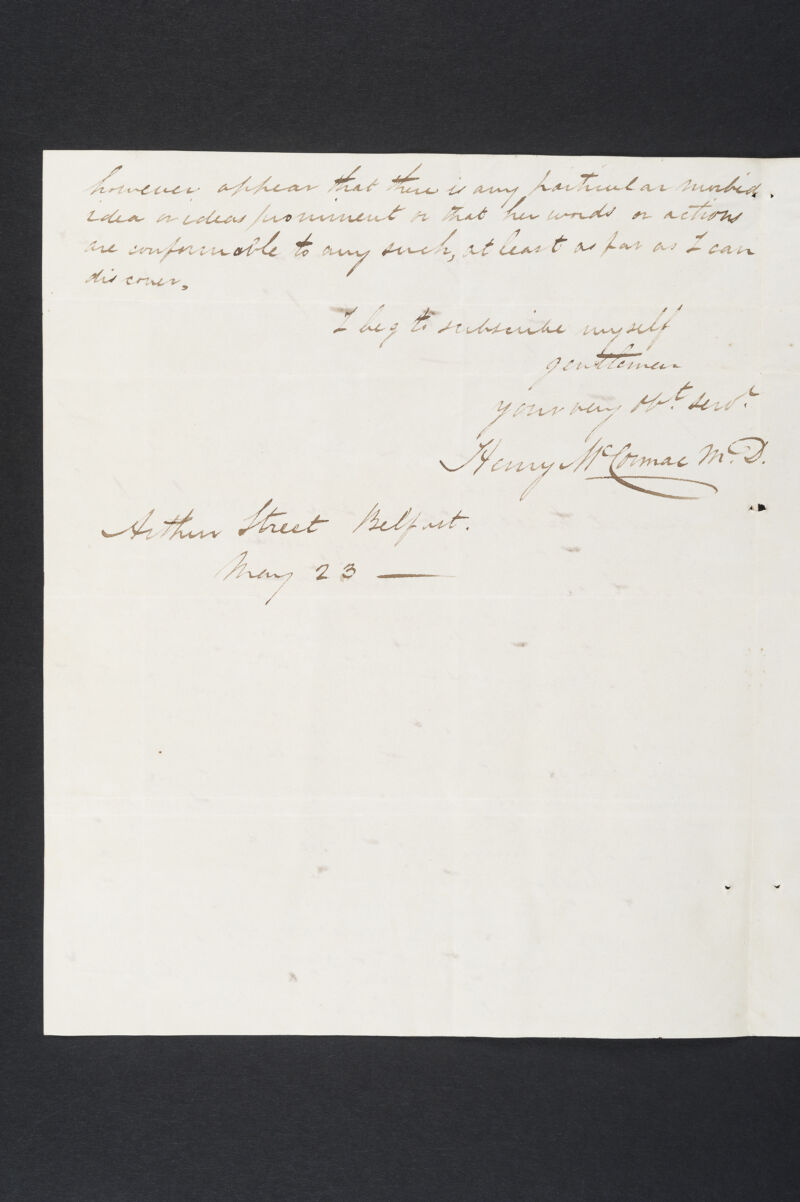 however appear that there is any particular morbid
idea or ideas prominent or that her words or actions
are conformable to any such, at least as far as I can
discover.
I beg to subscribe myself
gentlemen
your very obt. servt.
Henry McCormac M.D.
Arthur Street Belfast.
May 23 —